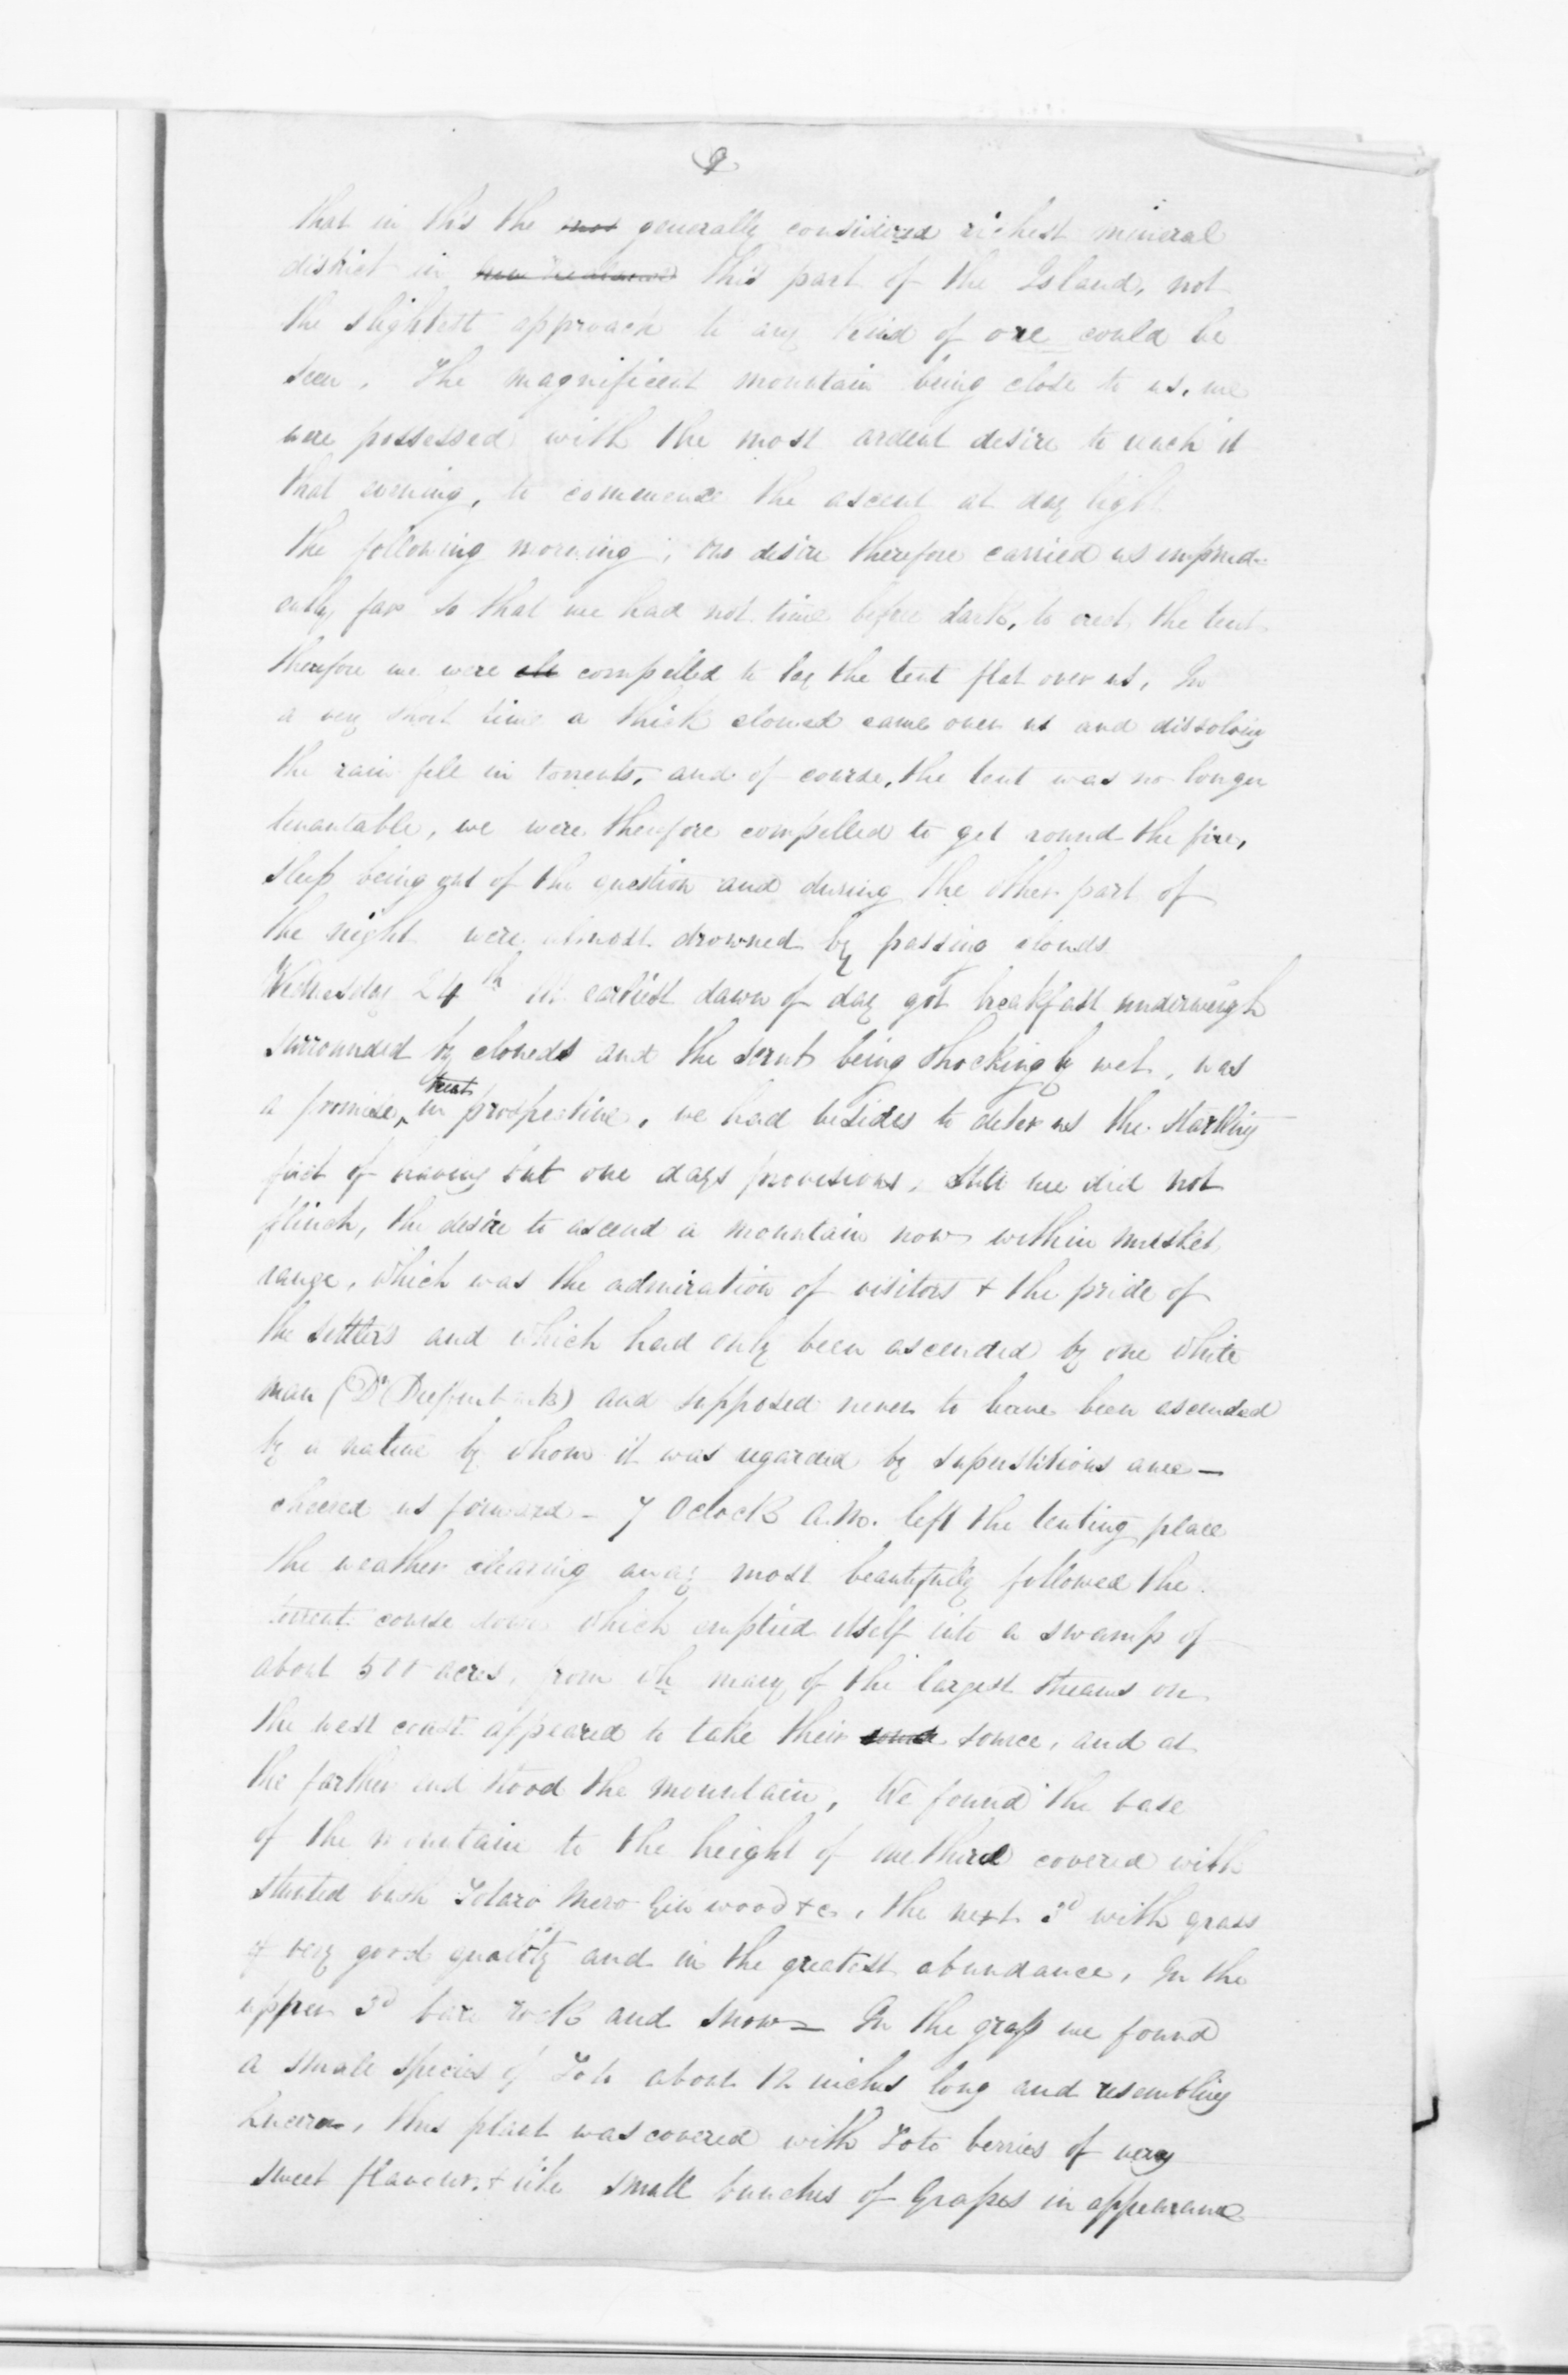 9
that in this the mos generally considered richest mineral
district in this part of the Island, not
the slightest approach to any kind of ore could be
seen. The magnificent mountain being close to us, we
were possessed with the most ardent desire to reach it
that evening, to commence the ascent at day light
the following morning; our desire therefore carried us imprud-
ently far so that we had not time before dark, to erect the tent
therefore we were compelled to lay the tent flat over us, In
a very short time a thick cloud came over us and dissolving
the rain fell in torrents, and of course, the tent was no longer
tenantable, we were therefore compelled to get round the fire,
sleep being out of the question and during the other part of
the night were almost drowned by passing clouds
Wednesday 24th At earliest dawn of day got breakfast underweigh
surrounded by clouds and the scrub being shockingly wet, was
a promise, treat in prospective, we had besides to deter us the startling
fact of having but one days provisions, still we did not
flinch, the desire to ascend a mountain now within musket
range, which was the admiration of visitors + the pride of
the settlers and which had only been ascended by one white
man (Dr Dieffenback) and supposed never to have been ascended
by a native by whom it was regarded by superstitious awe —
cheered us forward – 7 Oclock A.M. left the tenting place
the weather clearing away most beautifully followed the
torrent course down which emptied itself into a swamp of
about 500 acres, from wh many of the largest streams on
the west coast appeared to take their source, and at
the farther end stood the mountain, We found the base
of the mountain to the height of one third covered with
stunted bush Totara Mero Gia wood + c., the next 3d with grass
of very good quality and in the greatest abundance, In the
upper 3d bare rock and snow – In the grass we found
a small species of Toto about 12 inches long and resembling
Lucern, this plant was covered with Toto berries of very
sweet flavour + like small bunches of Grapes in appearance